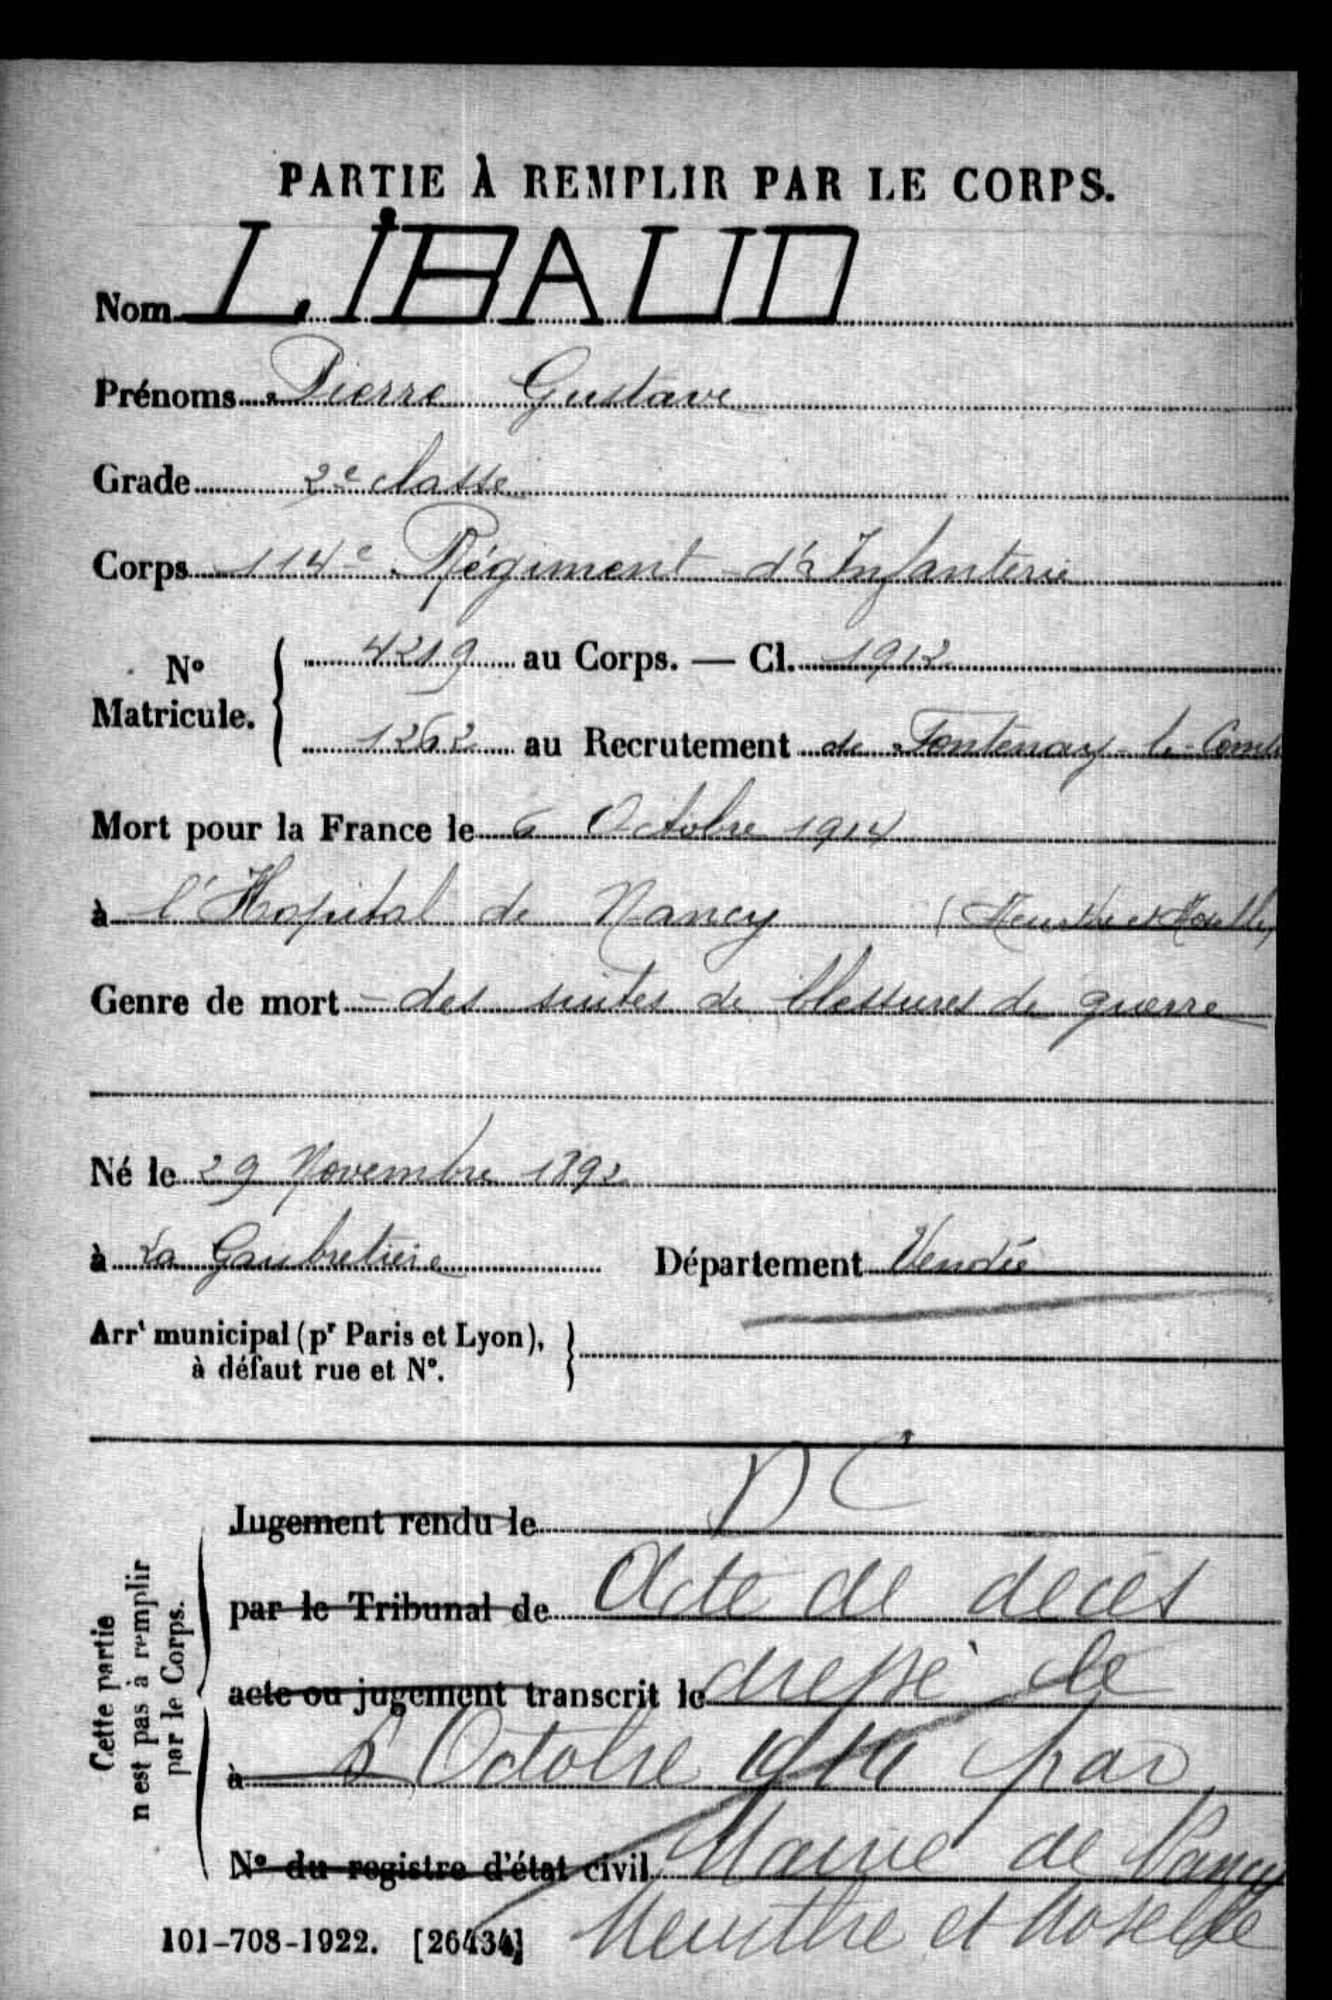 PARTIE À REMPLIR PAR LE CORPS.
Nom LIBAUD
Prénoms Pierre Gustave
Grade 2e classe
Corps 114e Régiment d'Infanterie
No Matricule. { 4219 au Corps. — Cl. 1912
1262 au Recrutement de Fontenay-le-Comte
Mort pour la France le 6 Octobre 1914
à l'Hopital de Nancy (Meurthe et Moselle)
Genre de mort - des suites de blessures de guerre
Né le 29 Novembre 1892
à La Gaubretière Département Vendée
Arrt municipal (pr Paris et Lyon), à défaut rue et No. }
DC
Cette partie n'est pas à remplir par le Corps.
Jugement rendu le
par le Tribunal de Acte de décès
acte ou jugement transcrit le dressé le
à Octobre 1914 par
No du registre d'état civil Mairie de Nancy
101-708-1922. [26434] Meurthe et Moselle